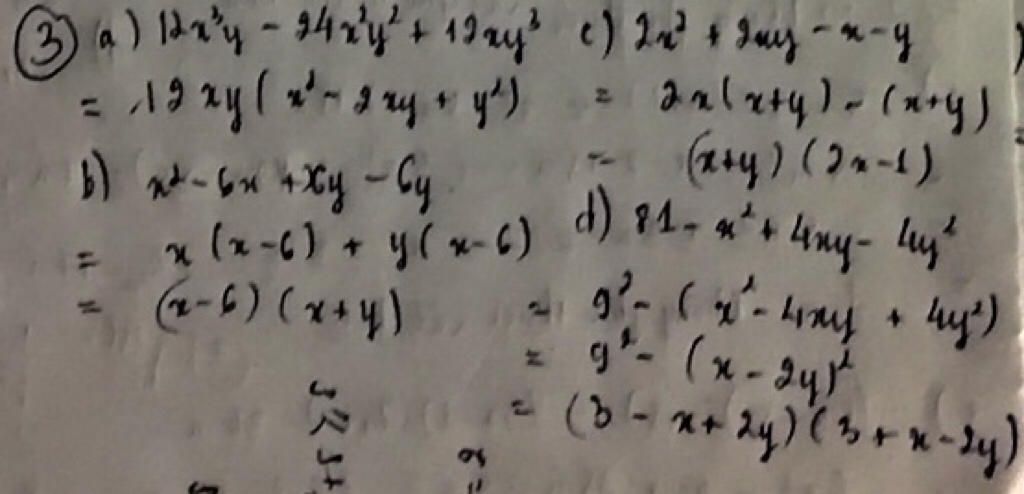 ③ a) 12x³y - 24x²y² + 12xy³
= 12xy(x² - 2xy + y²)
b) x² - 6x + xy - 6y
= x(x-6) + y(x-6)
= (x-6)(x+y)
c) 2x² + 2xy - x - y
= 2x(x+y) - (x+y)
= (x+y)(2x-1)
d) 81 - x² + 4xy - 4y²
= 9² - (x² - 4xy + 4y²)
= 9² - (x - 2y)²
= (3 - x + 2y)(3 + x - 2y)